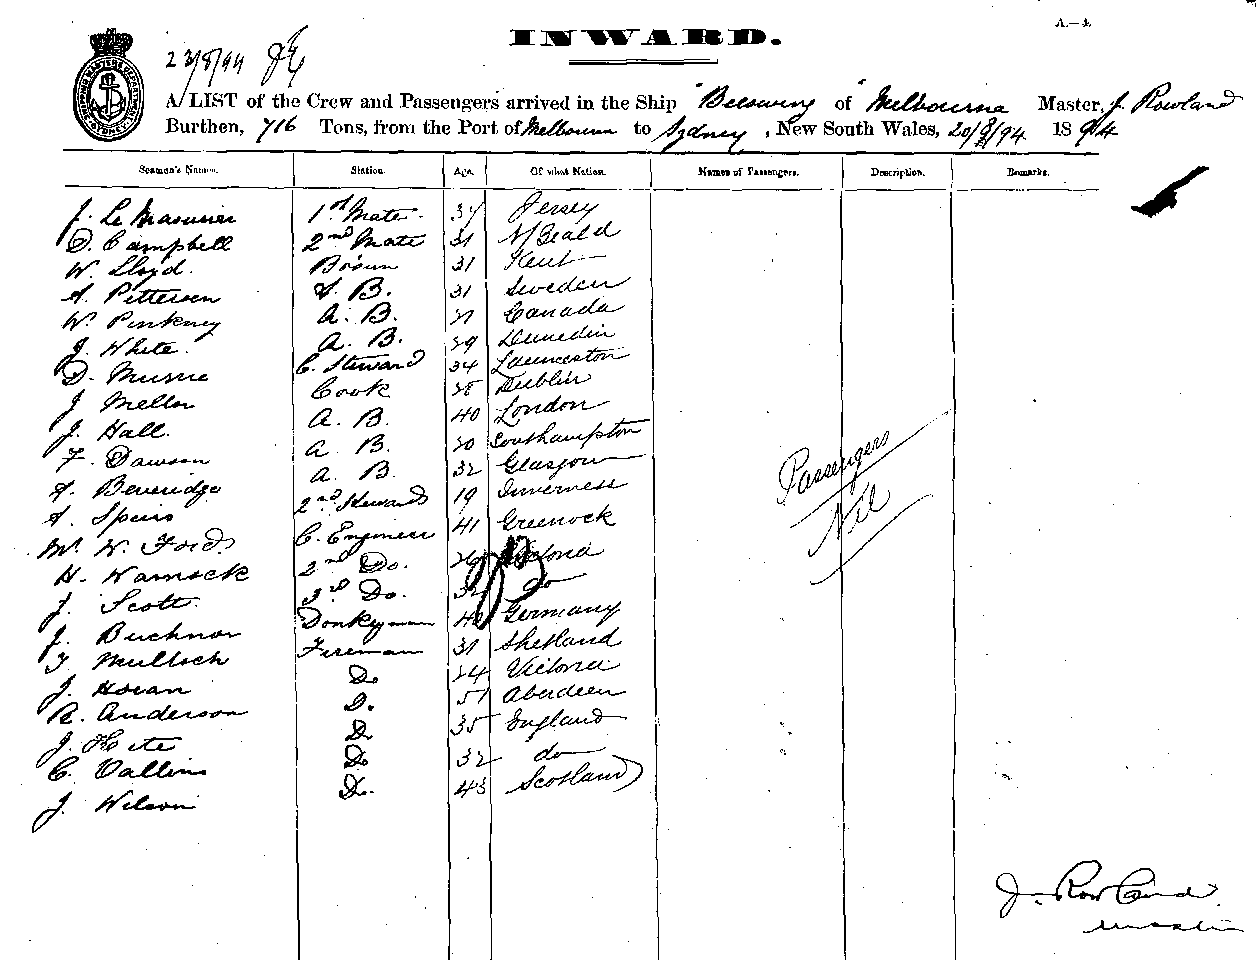 A.—4.
INWARD.
23/8/94
A LIST of the Crew and Passengers arrived in the Ship "Beeswing" of Melbourne Master, J. Rowland
Burthen, 716 Tons, from the Port of Melbourne to Sydney, New South Wales, 20/8/94 1894
Seamen's Names. Station. Age. Of what Nation. Names of Passengers. Description. Remarks.
J. Le Masurier 1st Mate 37 Jersey
D. Campbell 2nd Mate 31
W. Lloyd Bosun 31 Kent
A. Petterson A. B. 31 Sweden
W. Pinkney A. B. Canada
J. White A. B. 29 Dunedin
D. C. Steward 34 Launceston
J. Mellor Cook 28 Dublin
J. Hall A. B. 40 London
F. Dawson A. B. 20 Southampton
A. Beveridge A. B. 32 Glasgow
A. Speirs 2nd Steward 19 Inverness
W. W. Ford C. Engineer 41 Greenock
H. Warnock 2nd Do. 26 Victoria
J. Scott 3rd Do. do
J. Buchnor Donkeyman Germany
T. Mulloch Fireman 31 Shetland
J. Horan Do 24 Victoria
R. Anderson Do 51 Aberdeen
J. Hite Do 35 England
C. Vallins Do 32 do
J. Wilson Do. 43 Scotland
Passengers
Nil
J. Rowland
Master